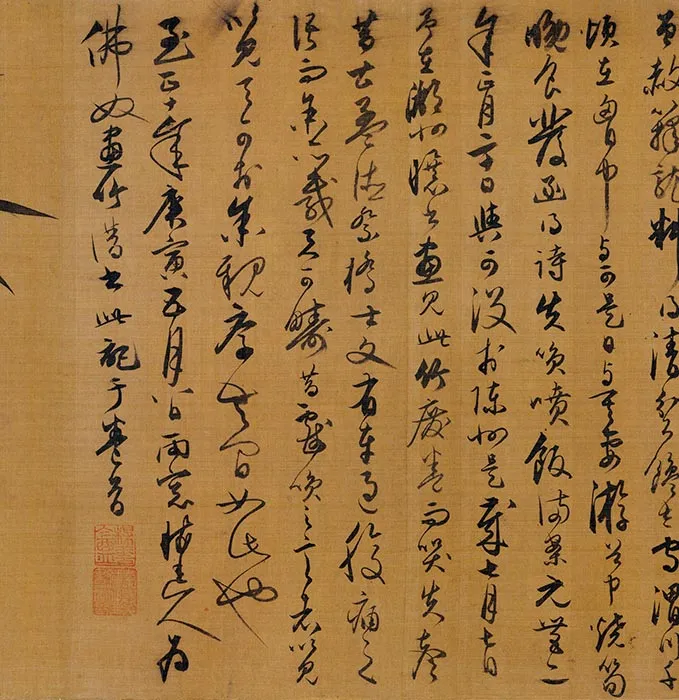 曾赦籜龍料得清貧饞太守渭川千
頃在胸中与可是日与其妻游谷中燒筍
晚食發函得詩失笑噴飯滿案元豐二
年正月二十日與可沒於陳州是歲七月七日
予在湖州曝書畫見此竹廢卷而哭失聲
昔曹孟德祭橋公文有車過腹痛之
語而余亦載与可疇昔戲笑之言者以見
与可於余親厚無間如此也
至正十年庚寅五月日雨窓梅道人為
佛奴畫竹書此記于卷首